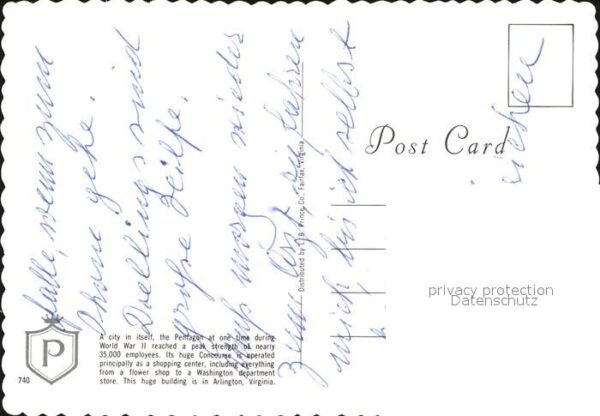 falle, wenn zum
Phone gehe.
Doellings sind
große Hilfe.
muß morgen wieder
zum Arzt zu fahren
mich bis ich selbst
Post Card
privacy protection
Datenschutz
Distributed by L. B. Prince Co., Fairfax, Virginia.
P
740
A city in itself, the Pentagon at one time during
World War II reached a peak strength of nearly
35,000 employees. Its huge Concourse is operated
principally as a shopping center, including everything
from a flower shop to a Washington department
store. This huge building is in Arlington, Virginia.